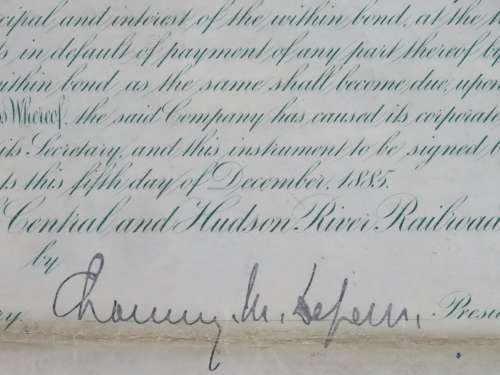 cipal and interest of the within bond, at the
s in default of payment of any part thereof by
within bond as the same shall become due, upon
ss Whereof, the said Company has caused its corporate
its Secretary, and this instrument to be signed b
ts this fifth day of December, 1885.
Central and Hudson River Railroad
by
Chauncey M. Depew. Presi
ry.